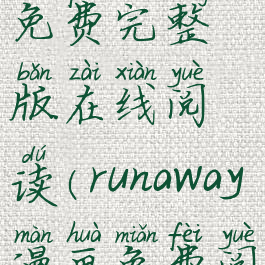 免费完整
bǎn zài xiàn yuè
版在线阅
dú
读(runaway
màn huà miǎn fèi yuè
漫画免费阅